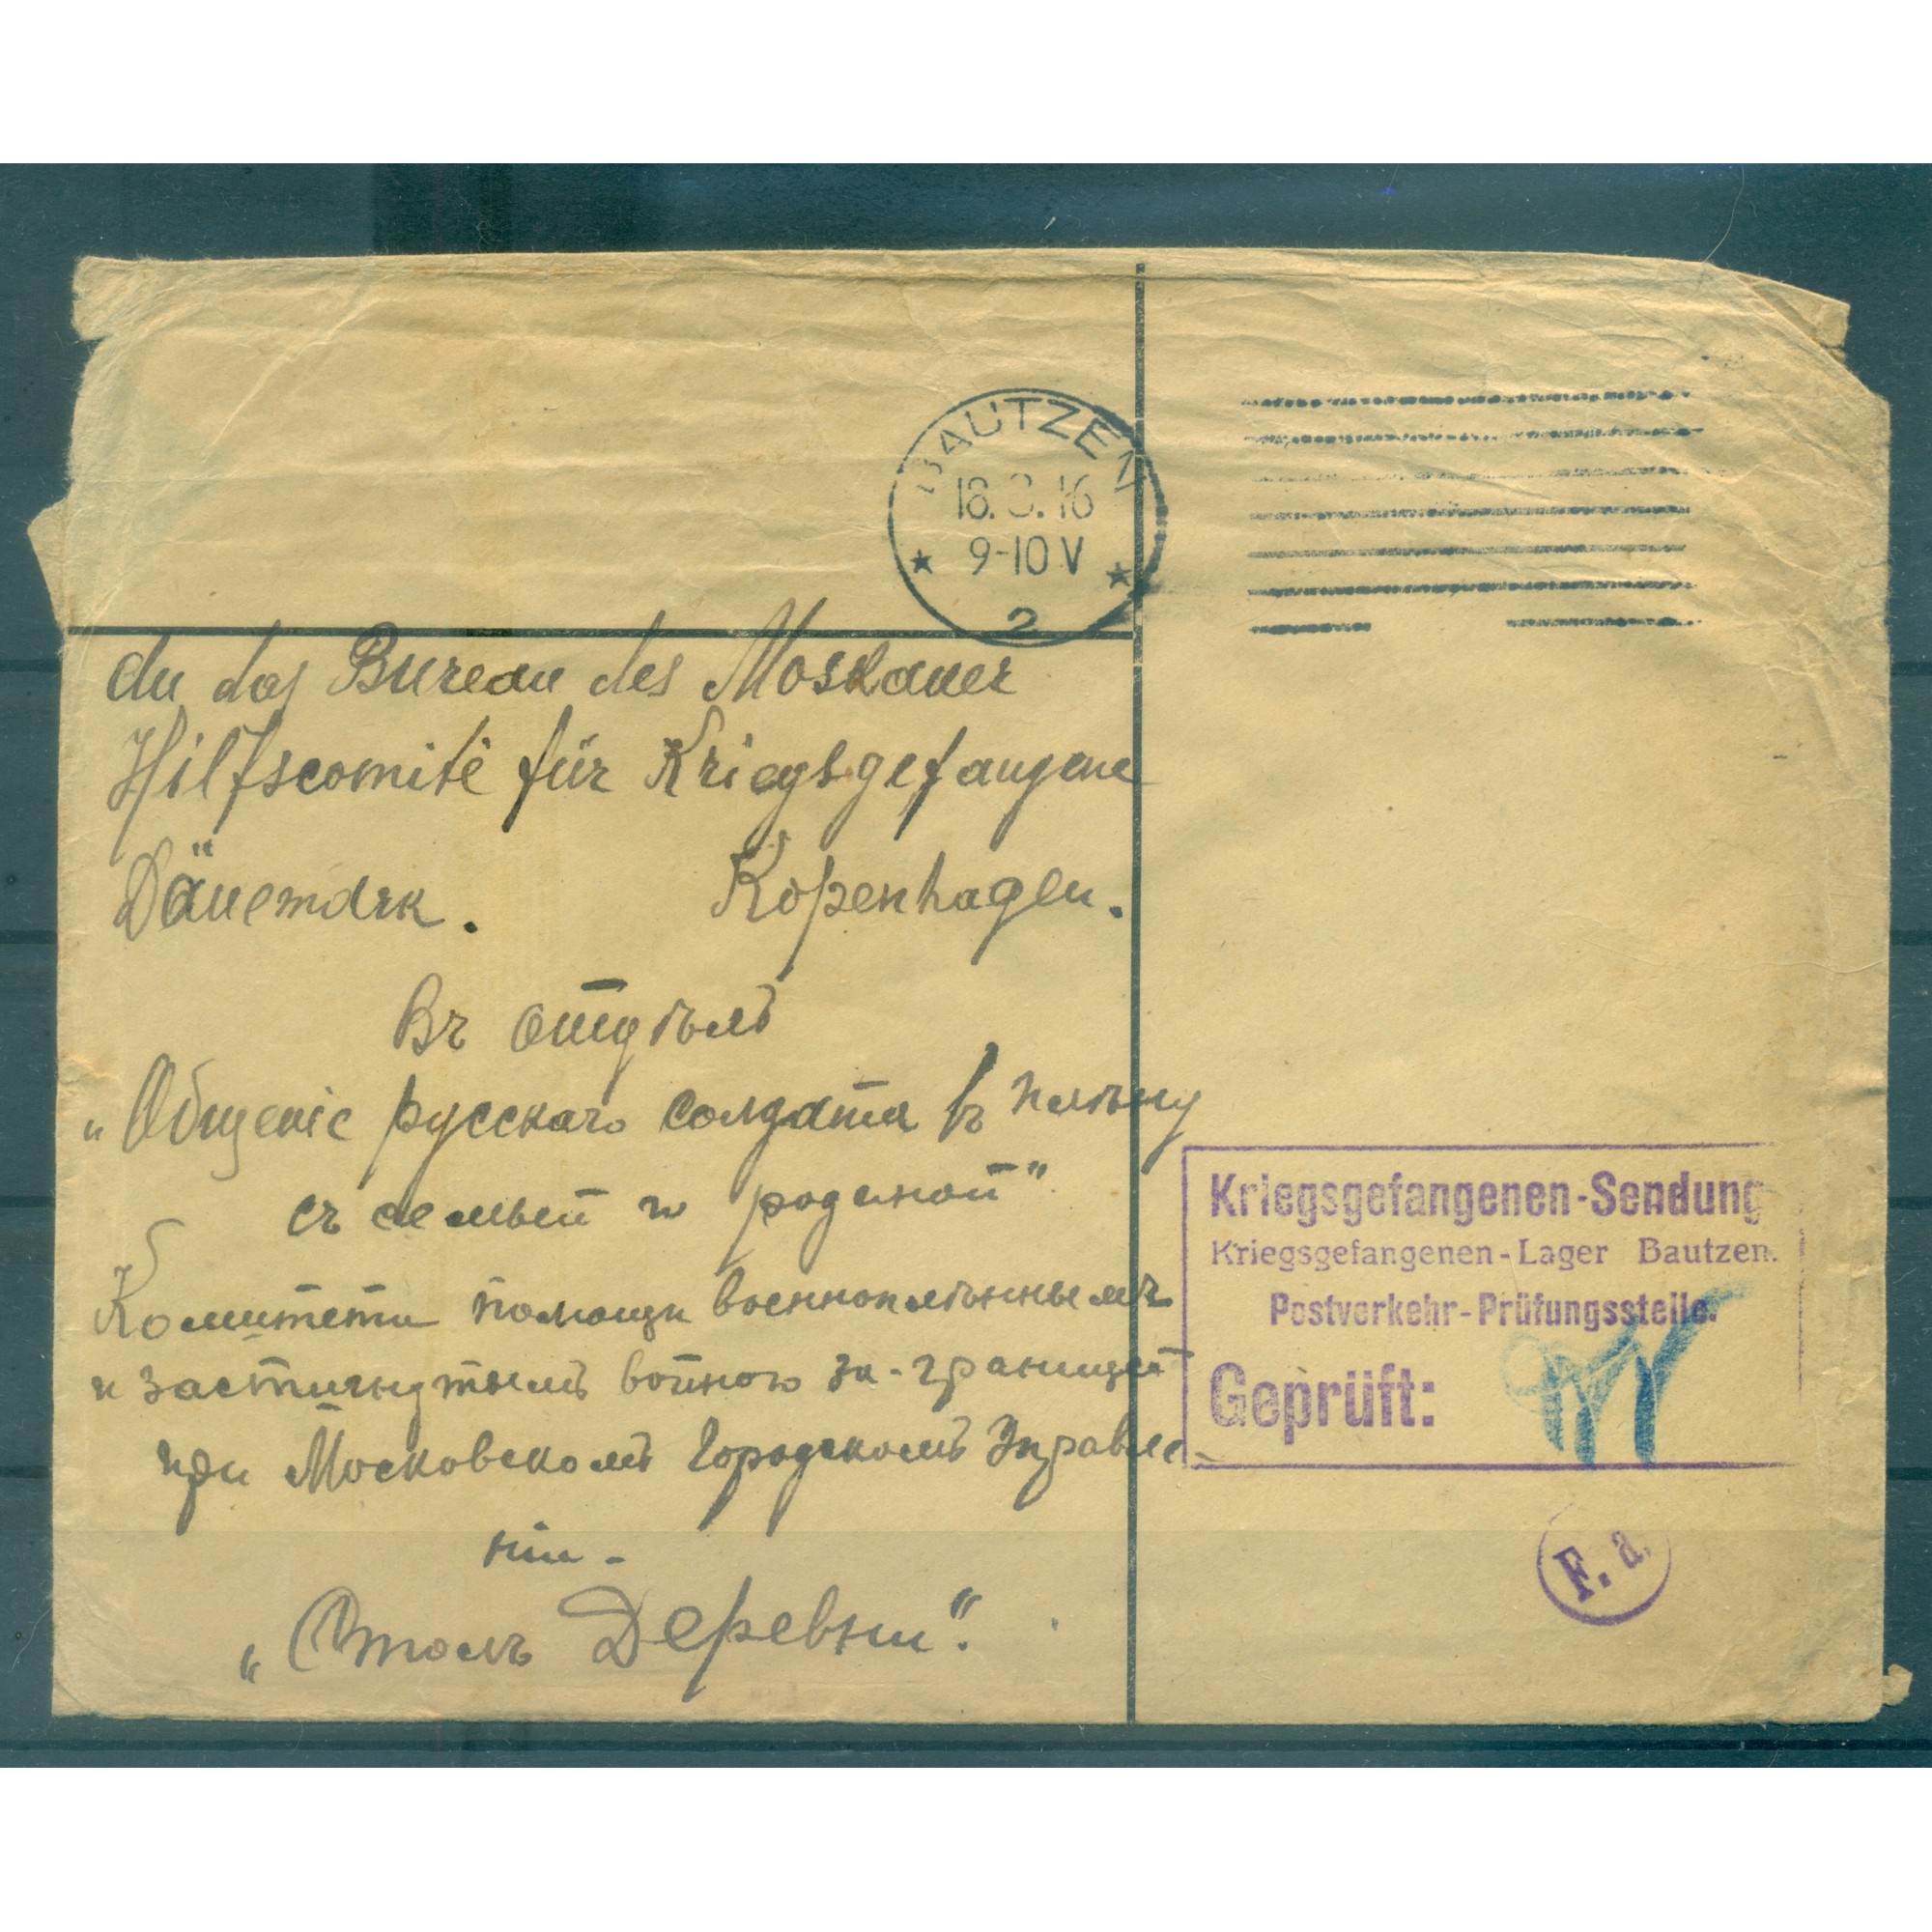 BAUTZEN
18. .16
9-10 V
2
An das Bureau des Moskauer
Hilfscomité für Kriegsgefangene
Dänemark. Kopenhagen.
Въ отдѣлъ
„Общеніе русскаго солдата въ плѣну
съ семьей и родиной“
Комитета помощи военноплѣннымъ
и застигнутымъ войною за-границей
при Московскомъ Городскомъ Управле-
ніи -
„Столъ Деревни“.
Kriegsgefangenen-Sendung
Kriegsgefangenen-Lager Bautzen.
Postverkehr-Prüfungsstelle.
Geprüft:
F. a.